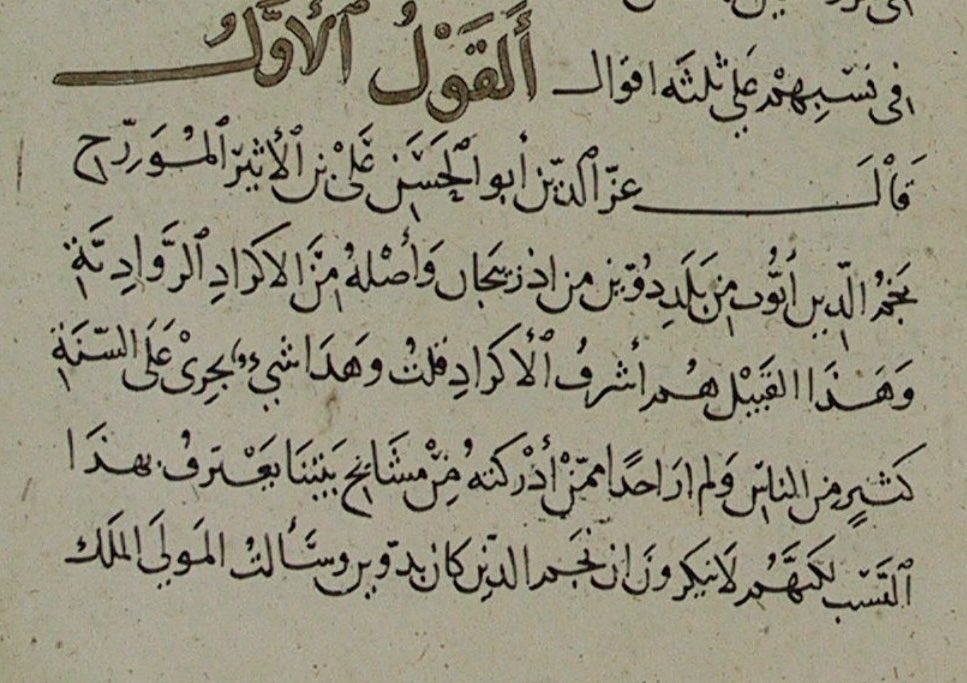 في نسبهم على ثلثه اقوال أَلقَوْلُ ٱلأَوَّلُ
قَاْلَ عزّ ٱلدّين أبو الحَسَن عَلىْ بن ٱلأثيرّ ٱلمُوَرِّرخ
نجمُ الدّين أيّوب مِن بَلَدِ دُوّين من اذربيجان وَأَصْلهُ مِنَ الاكرادِ ٱلرَّوادِيَّةِ
وَهَذَا القَبيْل هُم أشرفُ ٱلأكرادِ قلتُ وهَذَا شيءٌ يجرىْ عَلَى السّنَةِ
كَثيرٍ من الناسّ وَلم ارَ احدًا ممّنْ أدْركتهُ مِنْ مشَائخ بَيتنَا يَعْترفُ بهذَا
ٱلنّسَب لكنّهَّم لَا ينكرونَ ان نجَم الدّين كان بدّوين وسَألتُ المَولَى المَلك